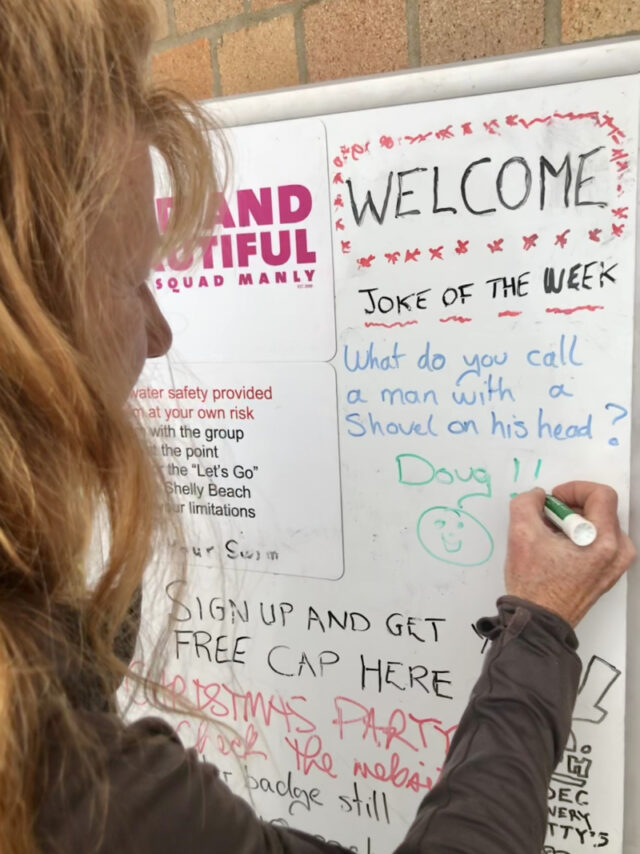 AND
TIFUL
SQUAD MANLY
water safety provided
at your own risk
with the group
the point
the "Let's Go"
Shelly Beach
limitations
Your Swim
WELCOME
JOKE OF THE WEEK
What do you call
a man with a
Shovel on his head?
Doug!!
SIGN UP AND GET
FREE CAP HERE
CHRISTMAS PARTY
Check the
badge still
DEC